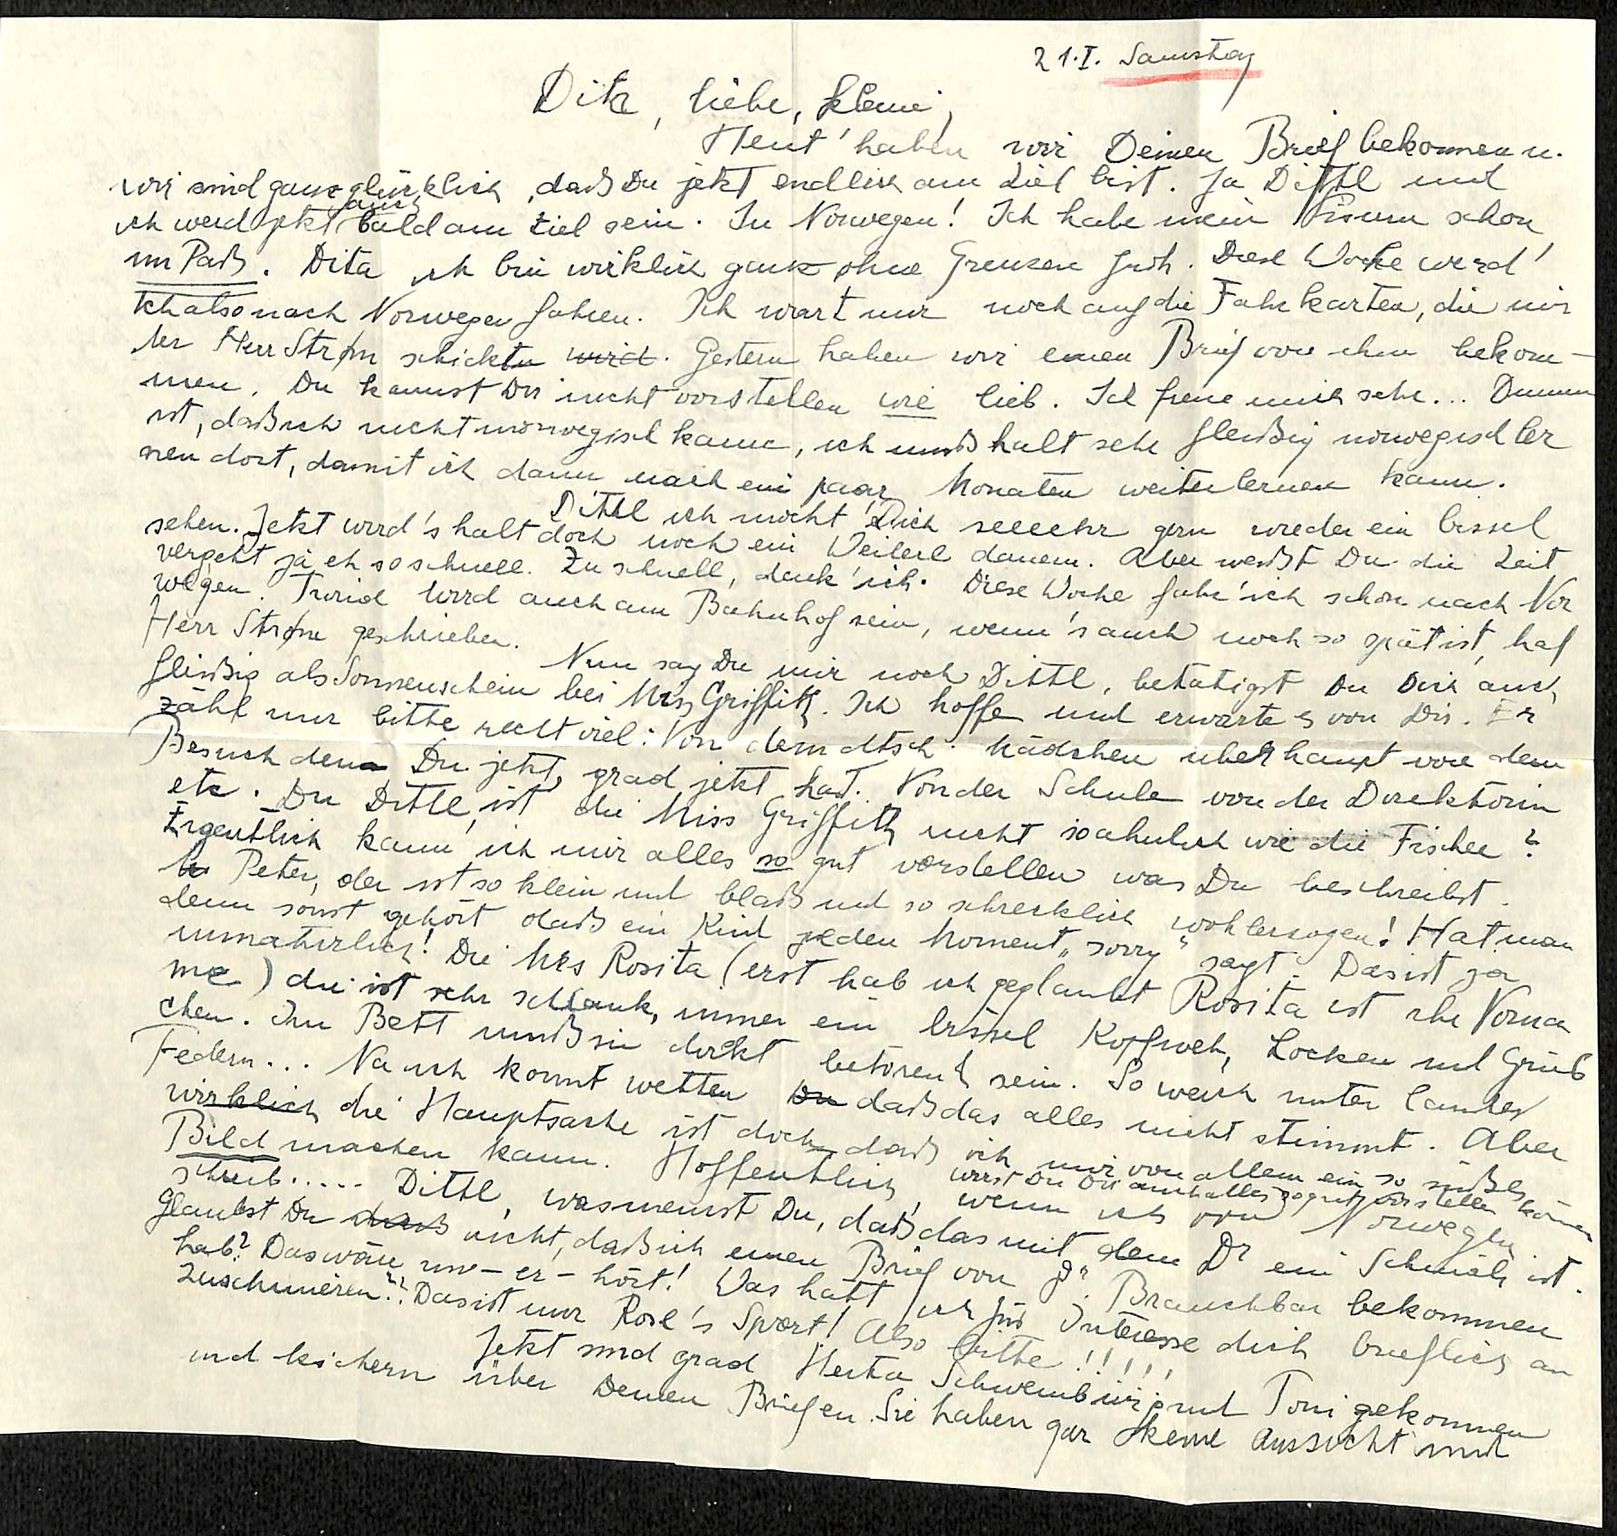 21.I. Samstag
Dita, liebe, kleine,
Heut' haben wir Deinen Brief bekommen u.
wir sind ganz glücklich, daß Du jetzt endlich am Ziel bist. Ja Dittl und
ich werd jetzt auch bald am Ziel sein. In Norwegen! Ich habe mein Visum schon
im Paß. Dita ich bin wirklich ganz ohne Grenzen froh. Diese Woche werd'
ich also nach Norwegen fahren. Ich wart nur noch auf die Fahrkarten, die mir
der Herr Strøm schickt wird. Gestern haben wir einen Brief von ihm bekom-
men. Du kannst Dir nicht vorstellen wie lieb. Ich freue mich sehr... Dumm
ist, daß ich nicht norwegisch kann, ich muß halt sehr fleißig norwegisch ler
nen dort, damit ich dann nach ein paar Monaten weiterlernen kann.
Dittl ich möcht' Dich seeeehr gern wieder ein bissel
sehen. Jetzt wird's halt doch noch ein Weilerl dauern. Aber weißt Du die Zeit
vergeht ja eh so schnell. Zu schnell, denk' ich. Diese Woche fahr' ich schon nach Nor
wegen. Turid wird auch am Bahnhof sein, wenn's auch noch so spät ist, hat
Herr Strøm geschrieben.
Nun sag Du mir noch Dittl, betätigst Du Dich auch
fleißig als Sonnenschein bei Mrs Griffith. Ich hoffe und erwarte es von Dir. Er
zähl mir bitte recht viel: Von dem dtsch. Mädchen überhaupt von dem
Besuch den Du jetzt, grad jetzt hast. Von der Schule von der Direktorin
etc. Du Dittl, ist die Miss Griffith nicht so ähnlich wie die Fischer?
Eigentlich kann ich mir alles so gut vorstellen was Du beschreibst.
Peter, der ist so klein und blaß und so schrecklich wohlerzogen! Hat man
denn sonst gehört daß ein Kind jeden Moment „sorry“ sagt. Das ist ja
unnatürlich! Die Mrs Rosita (erst hab ich geglaubt Rosita ist ihr Vorna
me) die ist sehr schlank, immer ein bissel Kopfweh, Locken und Grüb
chen. Im Bett muß sie direkt betörend sein. So weich unter lauter
Federn... Na ich könnt wetten Du daß das alles nicht stimmt. Aber
wirklich die Hauptsache ist doch daß ich mir von allem ein so süßes
Bild machen kann. Hoffentlich wirst Du Dir auch alles so gut vorstellen können
wenn ich von Norwegen
schreib..... Dittl, was meinst Du, daß das mit dem Dr ein Schmäh ist.
Glaubst Du daß nicht, daß ich einen Brief von Brauchbar bekommen
hab? Das wäre un-er-hört! Was hätt ich für Interesse dich brieflich an
zuschmieren?! Das ist nur Rosl's Sport! Also bitte!!!!!
Jetzt sind grad Herta und Toni gekommen
und kichern über Deinen Briefen. Sie haben gar keine Aussicht und